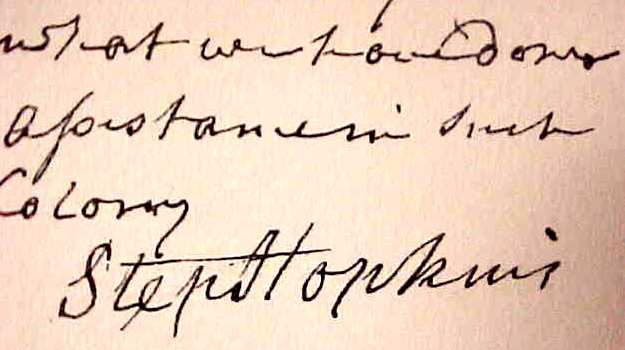 what we have done
assistance in such
Colony
Step Hopkins